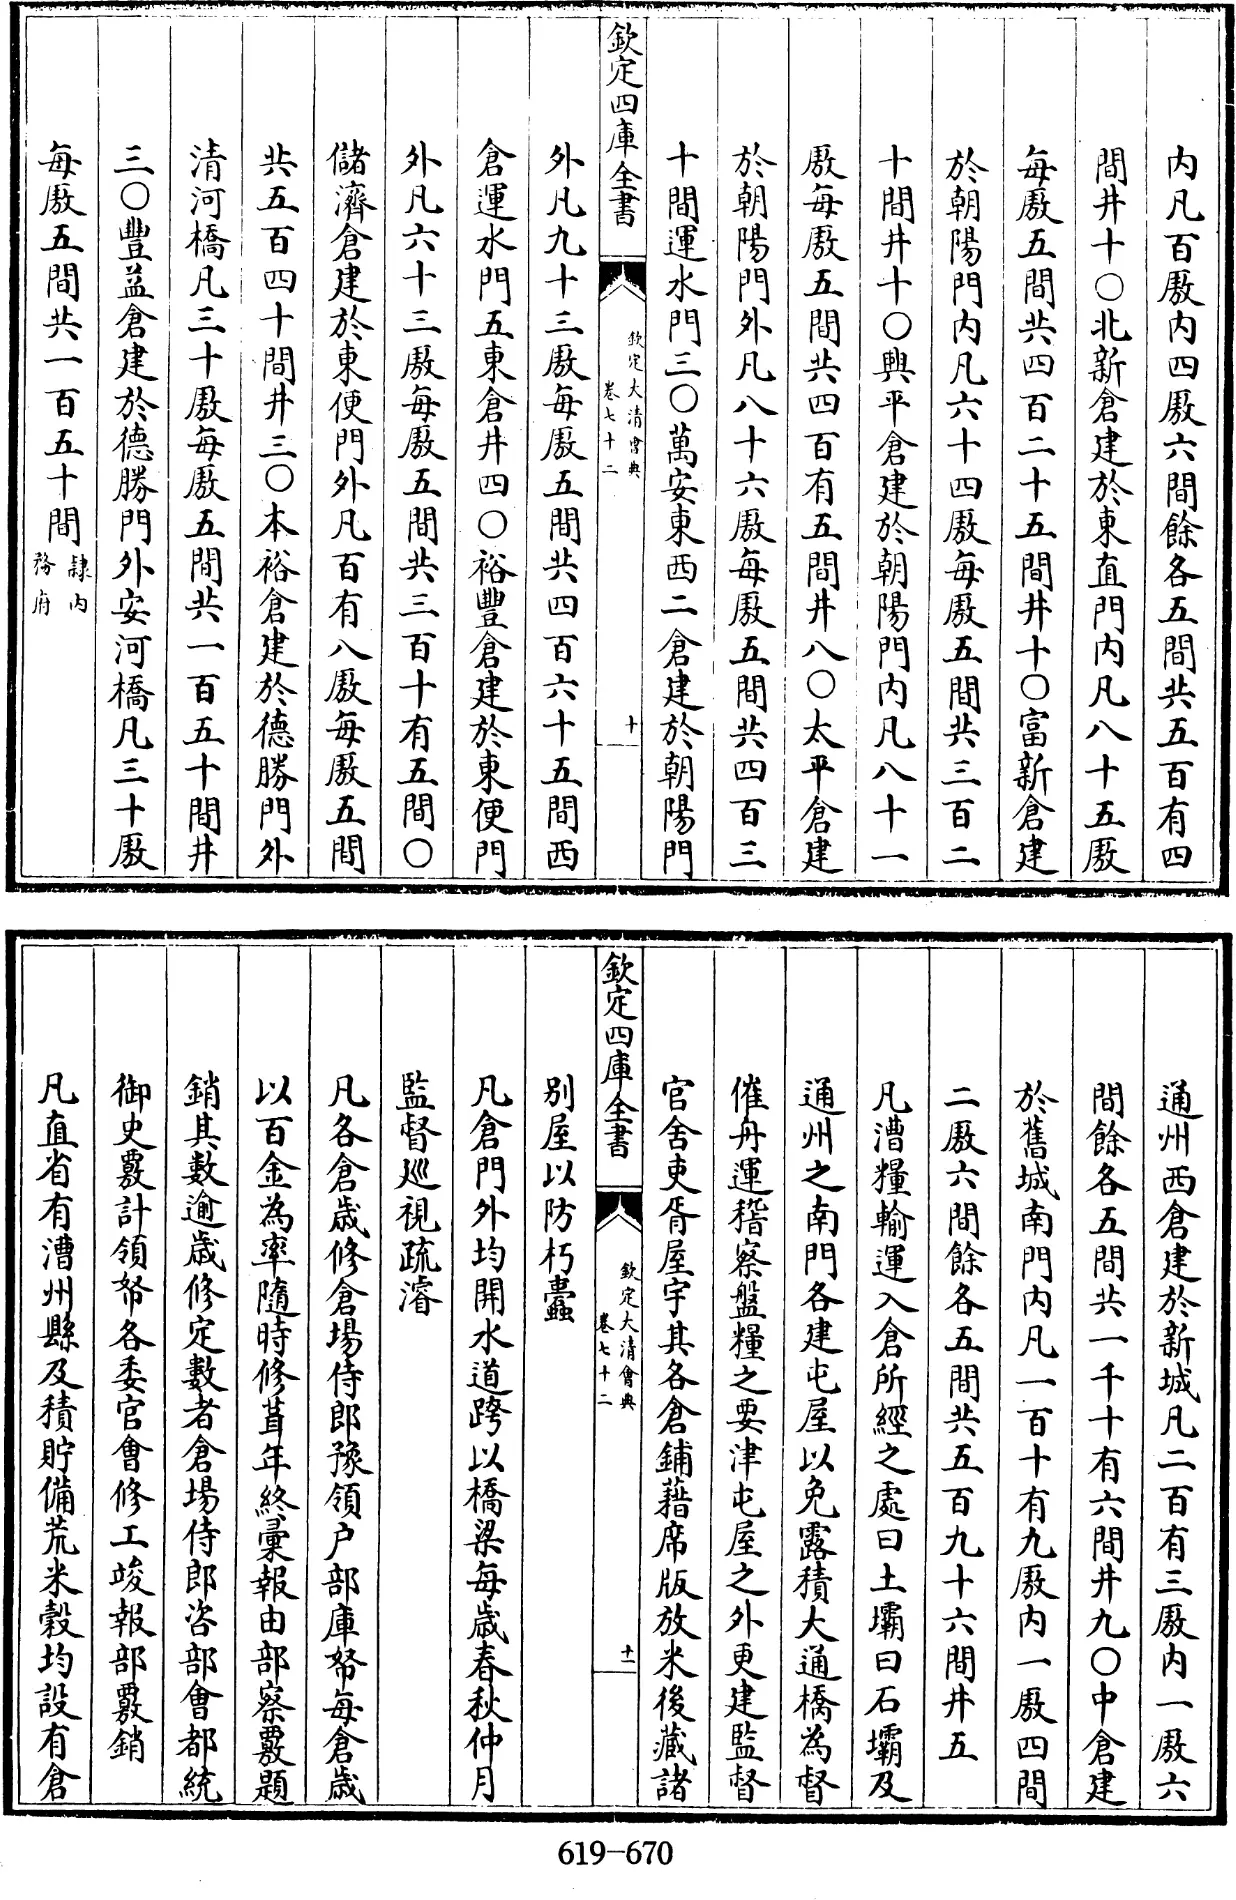 内凡百厫内四厫六間餘各五間共五百有四
間井十○北新倉建於東直門内凡八十五厫
每厫五間共四百二十五間井十○富新倉建
於朝陽門内凡六十四厫每厫五間共三百二
十間井十○興平倉建於朝陽門内凡八十一
厫每厫五間共四百有五間井八○太平倉建
於朝陽門外凡八十六厫每厫五間共四百三
十間運水門三○萬安東西二倉建於朝陽門
欽定四庫全書
欽定大清會典
卷七十二
十
外凡九十三厫每厫五間共四百六十五間西
倉運水門五東倉井四○裕豐倉建於東便門
外凡六十三厫每厫五間共三百十有五間○
儲濟倉建於東便門外凡百有八厫每厫五間
共五百四十間井三○本裕倉建於德勝門外
清河橋凡三十厫每厫五間共一百五十間井
三○豐益倉建於德勝門外安河橋凡三十厫
每厫五間共一百五十間隸内
務府
通州西倉建於新城凡二百有三厫内一厫六
間餘各五間共一千十有六間井九○中倉建
於舊城南門内凡一百十有九厫内一厫四間
二厫六間餘各五間共五百九十六間井五
凡漕糧輸運入倉所經之處曰土壩曰石壩及
通州之南門各建屯屋以免露積大通橋為督
催舟運稽察盤糧之要津屯屋之外更建監督
官舍吏胥屋宇其各倉鋪藉席版放米後藏諸
欽定四庫全書
欽定大清會典
卷七十二
十一
別屋以防朽蠹
凡倉門外均開水道跨以橋梁每歲春秋仲月
監督巡視疏濬
凡各倉歲修倉場侍郎豫領户部庫帑每倉歲
以百金為率隨時修葺年終彙報由部察覈題
銷其數逾歲修定數者倉場侍郎咨部會都統
御史覈計領帑各委官會修工竣報部覈銷
凡直省有漕州縣及積貯備荒米穀均設有倉
619-670